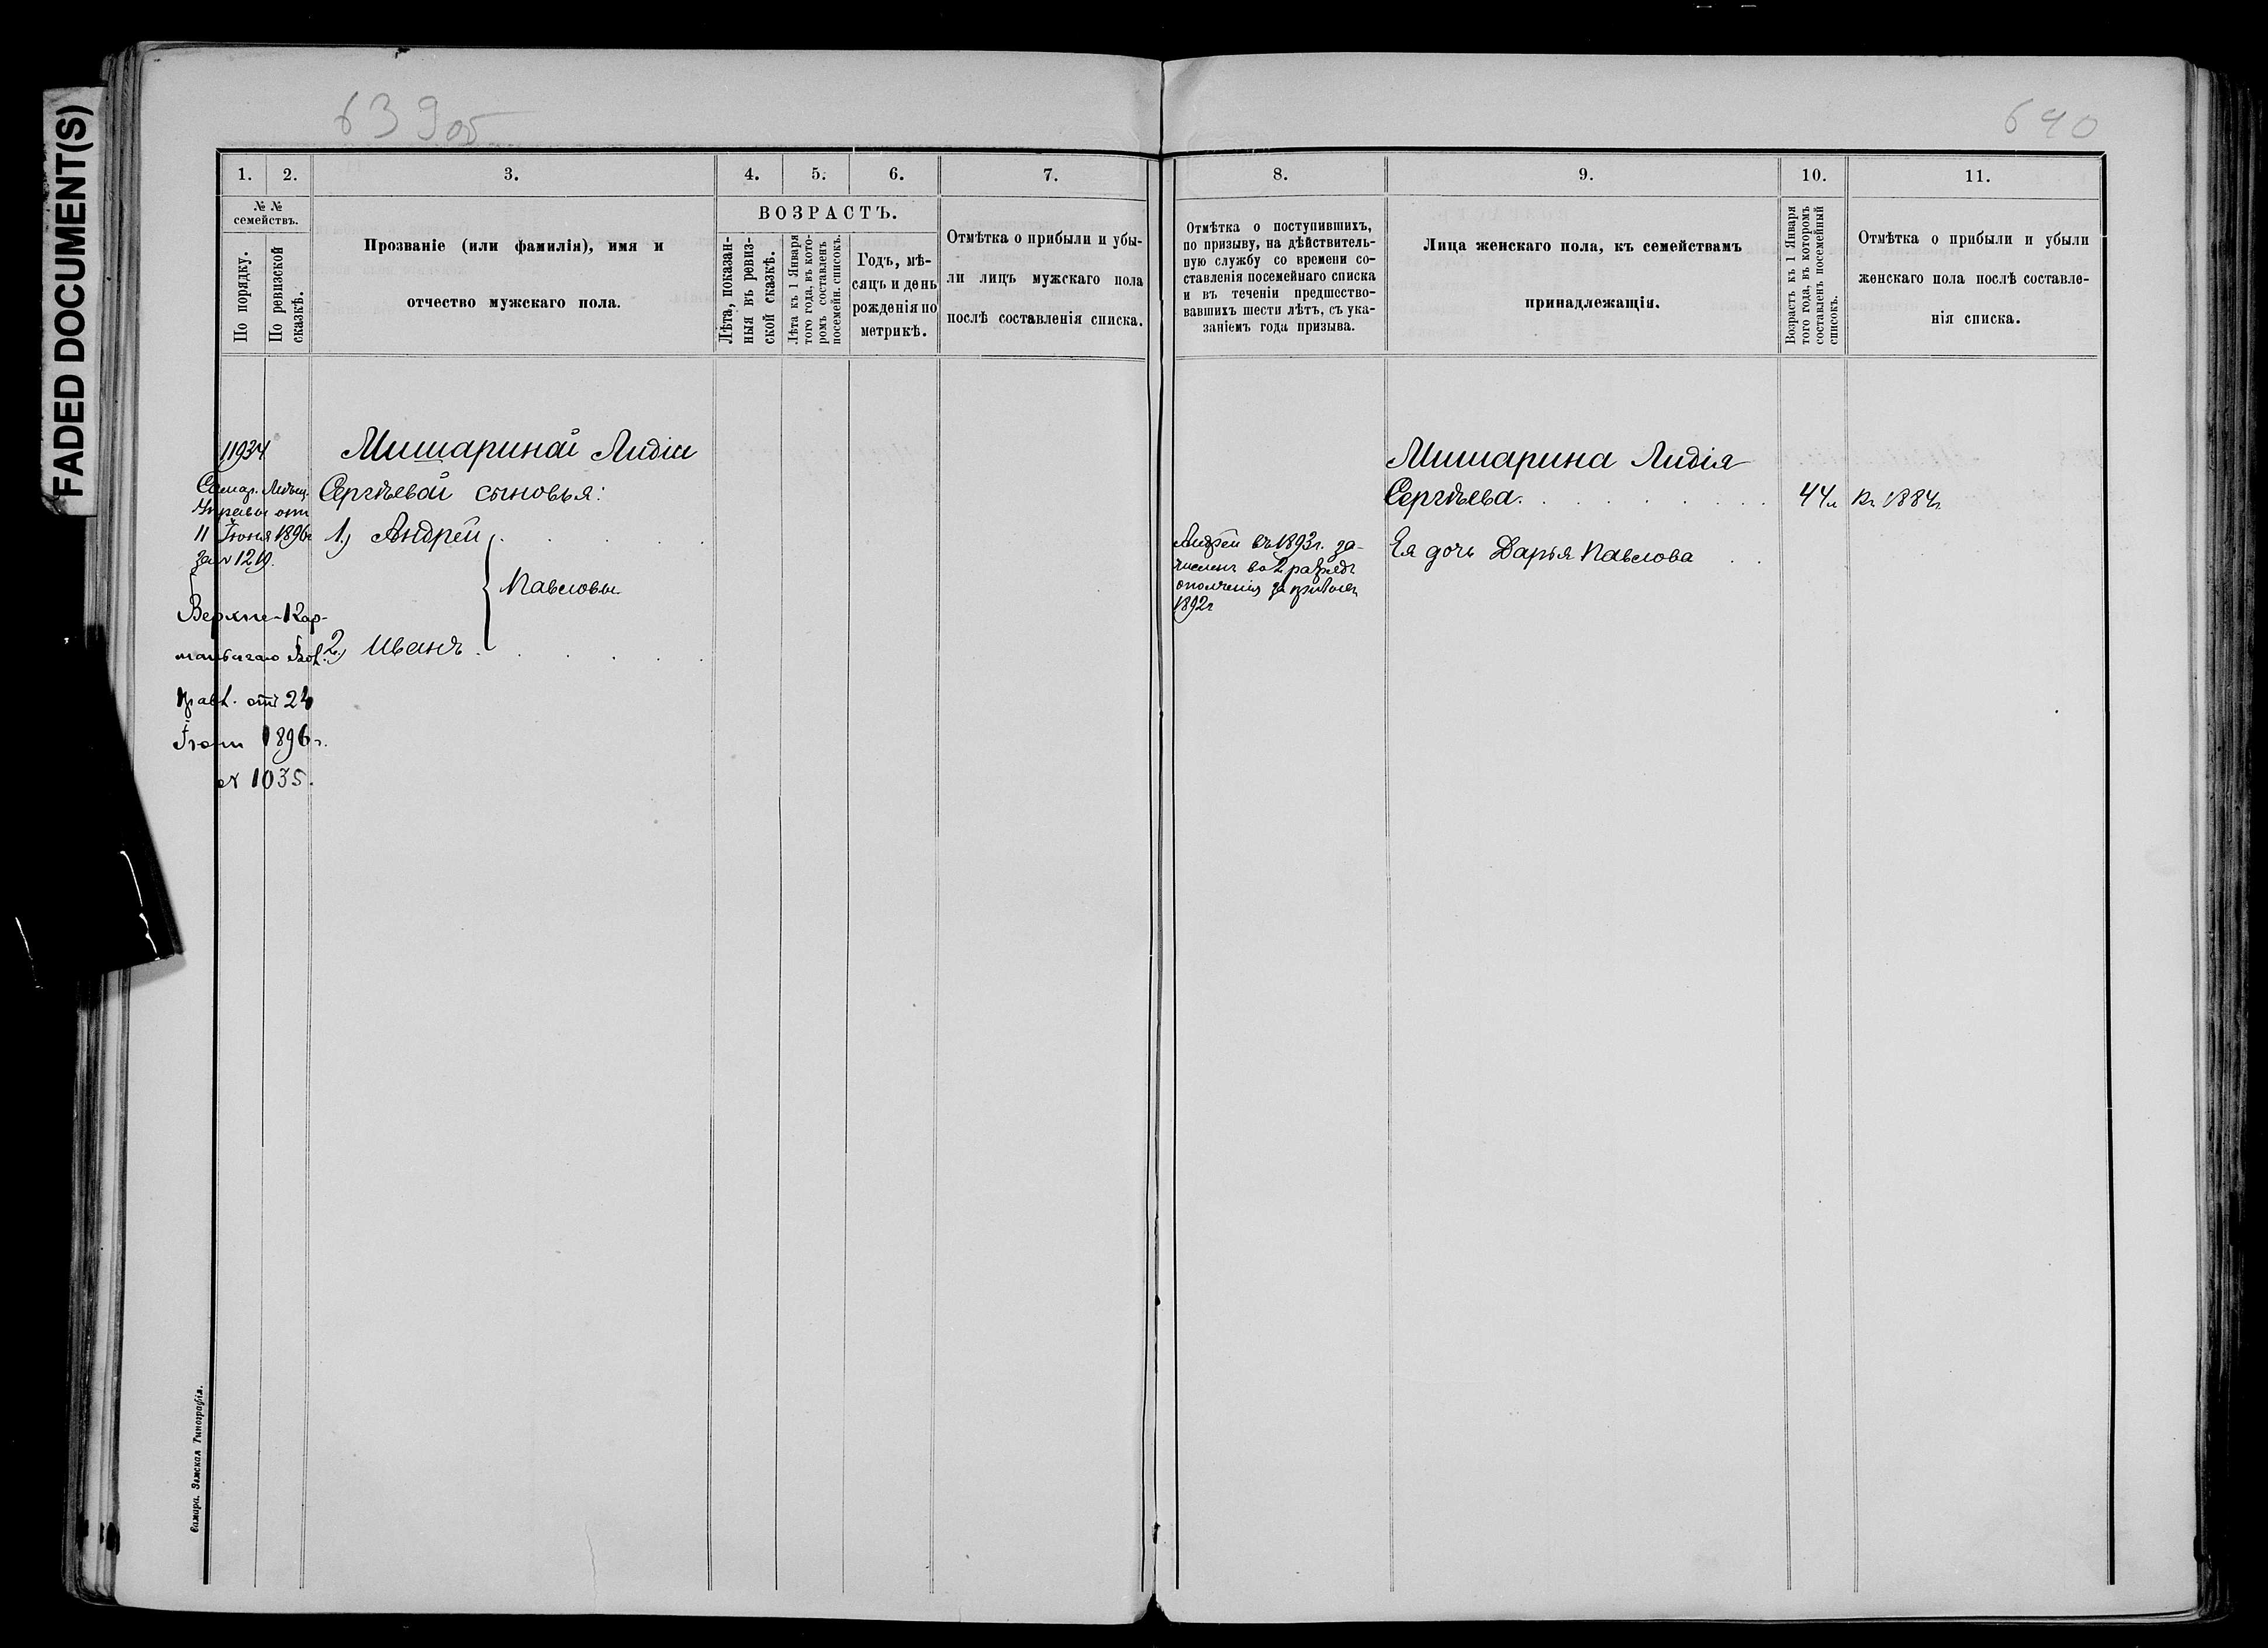 FADED DOCUMENT(S)
639 об
640
1.
2.
3.
4.
5.
6.
7.
8.
9.
10.
11.
№ №
семействъ.
По порядку.
По ревизской
сказкѣ.
Прозваніе (или фамилія), имя и
отчество мужскаго пола.
ВОЗРАСТЪ.
Лѣта, показан-
ныя въ ревиз-
ской сказкѣ.
Лѣта къ 1 Января
того года, въ кото-
ромъ составленъ
посемейн. списокъ.
Годъ, мѣ-
сяцъ и день
рожденія по
метрикѣ.
Отмѣтка о прибыли и убы-
ли лицъ мужскаго пола
послѣ составленія списка.
Отмѣтка о поступившихъ,
по призыву, на дѣйствитель-
ную службу со времени со-
ставленія посемейнаго списка
и въ теченіи предшество-
вавшихъ шести лѣтъ, съ ука-
заніемъ года призыва.
Лица женскаго пола, къ семействамъ
принадлежащія.
Возрастъ къ 1 Января
того года, въ которомъ
составленъ посемейный
списокъ.
Отмѣтка о прибыли и убыли
женскаго пола послѣ составле-
нія списка.
11934
Самар. Мѣщ.
Управы от
11 Іюня 1896г
за № 1219.
Верхне-Кар-
малыкаго Вол.
Прав. отъ 24
Іюня 1896 г.
№ 1035.
Мишариной Лидіи
Сергѣевой сыновья:
1) Андрей
Павловы
2) Иванъ
Андрей въ 1893г. за-
численъ во 2 разрядъ
ополченія за призывъ
1892г
Мишарина Лидія
Сергѣева. 44л
Ея дочь Дарья Павлова
1884г
Самара. Земская Типографія.